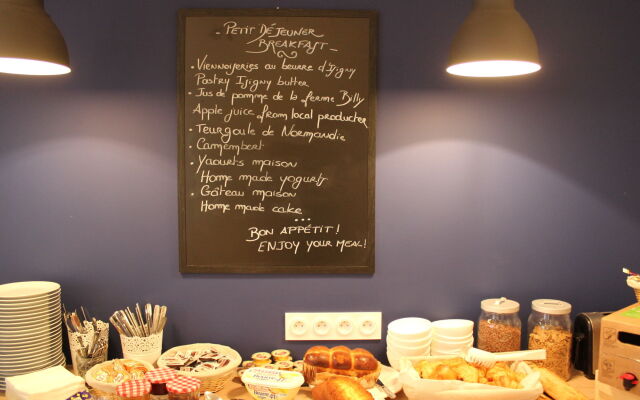 - Petit Déjeuner
BREAKFAST -
• Viennoiseries au beurre d'Isigny
Pastry Isigny butter
• Jus de pomme de la ferme Billy
Apple juice from local producter
• Teurgoule de Normandie
• Camembert
• Yaourts maison
Home made yogurts
• Gâteau maison
Home made cake
...
BON APPÉTIT!
ENJOY YOUR MEAL!